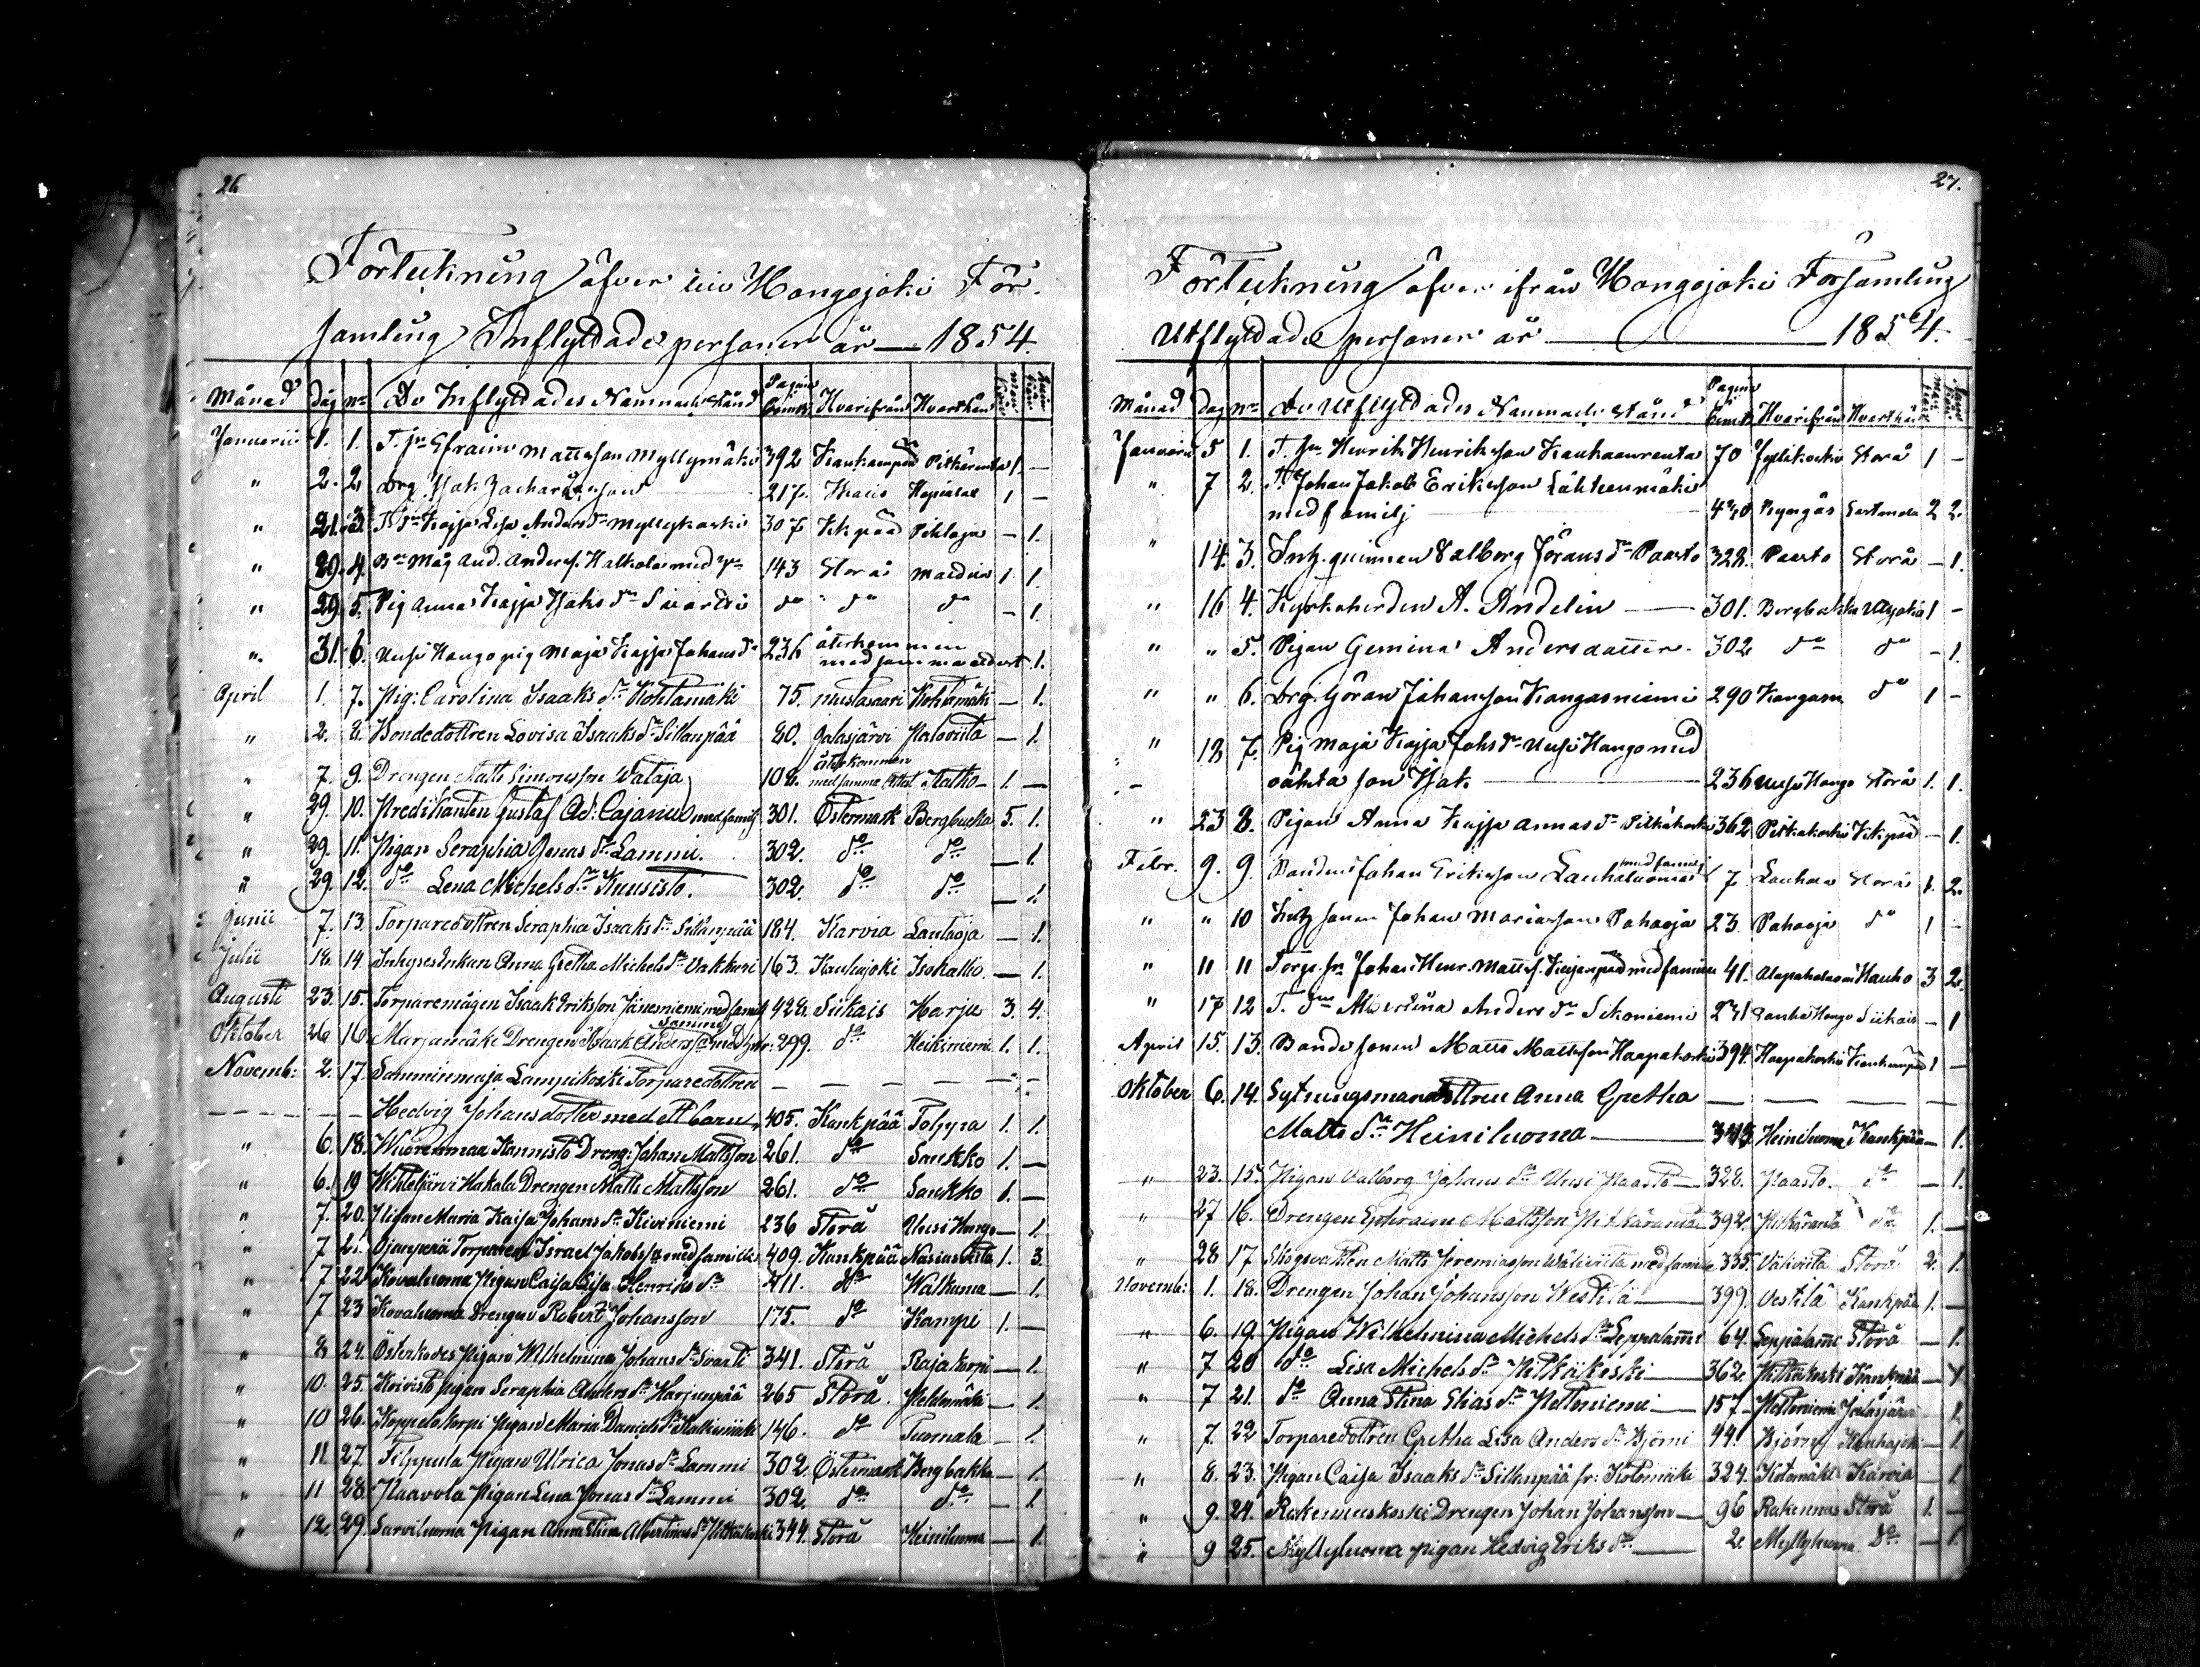 26
Förteckning öfver i Hongojoki För-
samling Inflyttade personer år — 1854.
Månad Dag No De Inflyttades Namn och stånd Pagina Hvarifrån Hvarthän
Januarii 1. 1. T. sn Efraim Mattsson Myllymäki 392 Kankaanpää Pitkäranta 1 —
" 2. 2. drg Isak 217. 1 —
" 21. 3. Kajsa Lisa Anders dr Myllykoski 307 Pihlaja — 1.
" 29. 4. Bn Måg And. Anders. Halkola med 143 Storå 1 1.
" 29. 5. Pig Anna Kajsa Isaks dr do do do — 1.
" 31. 6. Uusi Hongo pig Maja Kajsa Johans dr 236 återkommen
med samma attest 1.
April 1. 7. Pig: Carolina Isaaks dr Kohtamäki 75. Mustasaari Kohtamäki — 1.
" 2. 8. Bondedottren Lovisa Isaaks dr Sillanpää 80. Jalasjärvi — 1.
" 7. 9. Drengen Matts Simonsson Wataja 108. återkommen
med samma Attest 1. —
" 29. 10. Predikanten Gustaf Ad: Cajanus med famil 301. Östermark Bergbacka 5. 1.
" 29. 11. Pigan Seraphia Jonas dr Lammi. 302. do do — 1.
" 29. 12. do Lena Michels dr Kuusisto. 302. do do — 1.
Junii 7. 13. Torparedottren Seraphia Isaaks dr Sillanpää 184. Karvia Lautaoja — 1.
Julii 18. 14. Inhyses Enkan Anna Gretha Michels dr Vakkuri 163. Kauhajoki Isokallio — 1.
Augusti 23. 15. Torparemågen Isaak Eriksson Jäneniemi med famil 428. Siikais Harju 3. 4.
Oktober 26 16. Marjamäki Drengen Isaak Anders sn med 299. do Heikiniemi 1. 1.
Novemb: 2. 17. Samminmaja Lampikoski Torparedottren — — — — —
— — — Hedvig Johansdotter med ett barn 405. Kankpää 1. 1.
" 6. 18. Wuorenmaa Kannisto Dreng: Johan Mattsson 261. do Saukko 1. —
" 6. 19 Wihtiljärvi Hakala Drengen Matts Mattsson 261. do Saukko 1. —
" 7. 20. Pigan Maria Kaisa Johans dr Kiviniemi 236 Storå Uusi Hongo — 1.
" 7 21. Ojanperä Torparen Israel Jakobsson med famille 409. Kankpää 1. 3.
" 7 22 Kovaluoma Pigan Caisa Lisa Henriks dr 411. do Walkama — 1.
" 7 23 Kovaluoma Drengen Robert Johansson 175. do Kampi 1. —
" 8 24. Österkodes Pigan Wilhelmina Johans dr Svarti 341. Storå Rajakorpi — 1.
" 10. 25. Koivisto pigan Seraphia Anders dr Harjunpää 265 Storå. — 1.
" 10 26. Koppelokorpi Pigan Maria Daniels dr 146. do Tuomala — 1.
" 11 27. Filppula Pigan Ulrica Jonas dr Lammi 302 Östermark Bergbakka — 1.
" 11 28. Paavola Pigan Lena Jonas dr Lammi 302. do do — 1
" 12. 29. Sarviluoma Pigan Anna Stina Albertinas dr Pitkäkoski 344. Storå Heiniluoma — 1.
27.
Förteckning öfver ifrån Hongojoki Församling
Utflyttade personer år — 1854.
Månad Dag No De Utflyttades Namn och stånd Pagina Hvarifrån Hvarthän
Januarii 5 1. T. sn Henrik Henriksson Kauhaanranta 70 Storå 1 —
" 7 2. T. Johan Jakob Eriksson Lähteenmäki
med familj 2 2.
" 14. 3. Inh. qvinnan Valborg Jörans dr Paasto 328. Paasto Storå — 1.
" 16 4. Kyrkoherden A. Andelin — 301. Bergbakka 1 —
" " 5. Pigan Gemina Andersdotter 302 do do — 1.
" " 6. Drg. Göran Johansson Kangasniemi 290 Kangasn do 1 —
" 18 7. Pig Maja Kajsa Johs dr Uusi Hongo med
oäkta son Isak — 236 Uusi Hongo Storå 1. 1.
" 23 8. Pigan Anna Kajsa Annas dr Pitkäkoski 362 Pitkäkoski Kkpää — 1.
Febr. 9. 9. Bonden Johan Eriksson Lauhaluoma med familj 7 Lauhal Storå 1. 2.
" " 10 Inh sonen Johan Mariasson Pahaoja 23. Pahaoja do 1 —
" 11 11 Torp. sn Johan Henr. Matts s. med familie 41. 3 2.
" 17 12 T. dr Albertina Anders dr Sikoniemi 231 Siikais — 1
April 15. 13. Bonde sonen Matts Mattsson Haapakoski 394. Haapakoski Kankaanpää 1 —
Oktober 6. 14. Sytningsmansdottren Anna Gretha — — — —
Matts dr Heiniluoma — 343 Heiniluoma Kankpää — 1.
" 23. 15. Pigan Valborg Johans dr Uusi Paasto — 328. Paasto. do — 1.
" 27 16. Drengen Ephraim Mattsson Pitkäranta 392. Pitkäranta do 1. —
" 28 17. Skogsvakten Matts Jeremiasson Wäliviita med familie 335. Väliviita Storå 2. 1.
Novemb: 1. 18. Drengen Johan Johansson Westilä — 399. Vestilä Kankpää 1. —
" 6. 19. Pigan Wilhelmina Michels dr Seppälammi 64. Seppälammi Storå — 1.
" 7 20 do Lisa Michels dr Pitkäkoski — 362. Pitkäkoski Kankpää — 1
" 7 21. do Anna Stina Elias dr Peltoniemi — 157 Peltoniemi Jalasjärvi 1.
" 7. 22 Torparedottren Gretha Lisa Anders dr Björni 44. Björny Kauhajoki — 1.
" 8. 23. Pigan Caisa Isaaks dr Sillanpää fr: Kotomäki 324. Kotomäki Karvia — 1
" 9. 24. Rakennuskoski Drengen Johan Johansson — 96 Rakennus Storå 1. —
" 9 25. Myllyluoma pigan Hedvig Eriks dr — 2. Myllyluoma do — 1